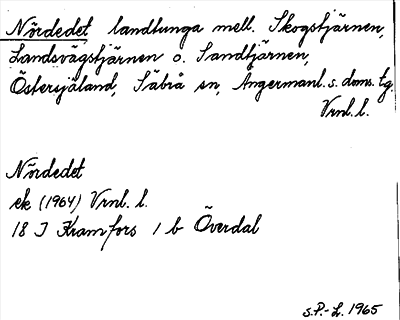 Nördedet landtunga mell. Skogstjärnen,
Landsvägstjärnen o. Sandtjärnen,
Östersjäland, Säbrå sn, Ångermanl. s. doms. tg.
Vrnl. l.
Nördedet
ek (1964) Vrnl. l.
18 J Kramfors 1 b Överdal
S.P.-L. 1965